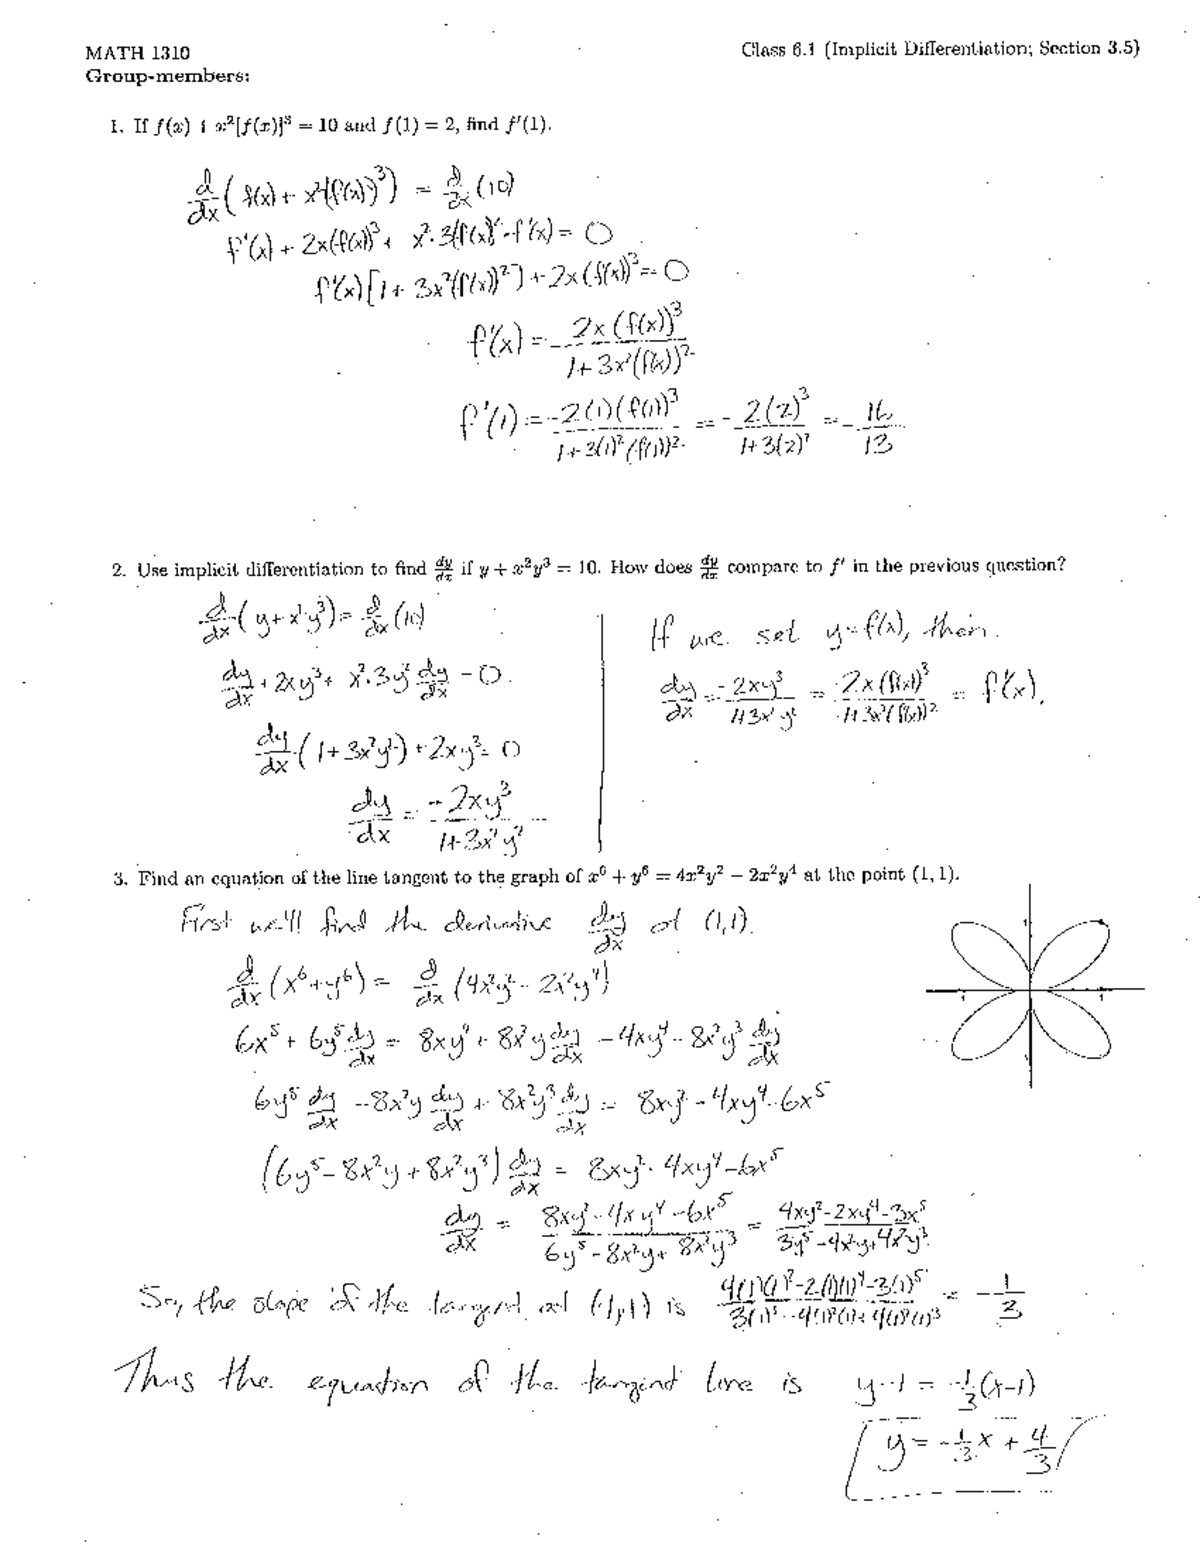 MATH 1310
Class 6.1 (Implicit Differentiation; Section 3.5)
Group-members:
1. If f(x) + x²[f(x)]³ = 10 and f(1) = 2, find f′(1).
d/dx (f(x) + x²(f(x))³) = d/dx (10)
f′(x) + 2x(f(x))³ + x²·3(f(x))²·f′(x) = 0
f′(x)[1 + 3x²(f(x))²] + 2x(f(x))³ = 0
f′(x) = - 2x(f(x))³ / 1 + 3x²(f(x))²
f′(1) = -2(1)(f(1))³ / 1 + 3(1)²(f(1))² = - 2(2)³ / 1 + 3(2)² = - 16/13
2. Use implicit differentiation to find dy/dx if y + x²y³ = 10. How does dy/dx compare to f′ in the previous question?
d/dx (y + x²y³) = d/dx (10)
dy/dx + 2xy³ + x²·3y² dy/dx = 0
dy/dx (1 + 3x²y²) + 2xy³ = 0
dy/dx = -2xy³ / 1 + 3x²y²
If we set y = f(x), then
dy/dx = -2xy³ / 1 + 3x²y² = -2x(f(x))³ / 1 + 3x²(f(x))² = f′(x).
3. Find an equation of the line tangent to the graph of x⁶ + y⁶ = 4x²y² − 2x²y⁴ at the point (1, 1).
First we'll find the derivative dy/dx at (1,1).
d/dx (x⁶ + y⁶) = d/dx (4x²y² - 2x²y⁴)
6x⁵ + 6y⁵ dy/dx = 8xy² + 8x²y dy/dx - 4xy⁴ - 8x²y³ dy/dx
6y⁵ dy/dx - 8x²y dy/dx + 8x²y³ dy/dx = 8xy² - 4xy⁴ - 6x⁵
(6y⁵ - 8x²y + 8x²y³) dy/dx = 8xy² - 4xy⁴ - 6x⁵
dy/dx = 8xy² - 4xy⁴ - 6x⁵ / 6y⁵ - 8x²y + 8x²y³ = 4xy² - 2xy⁴ - 3x⁵ / 3y⁵ - 4x²y + 4x²y³
So, the slope of the tangent at (1,1) is 4(1)(1)² - 2(1)(1)⁴ - 3(1)⁵ / 3(1)⁵ - 4(1)²(1) + 4(1)²(1)³ = - 1/3
Thus the equation of the tangent line is y - 1 = -1/3 (x - 1)
y = -1/3 x + 4/3
1
1
1